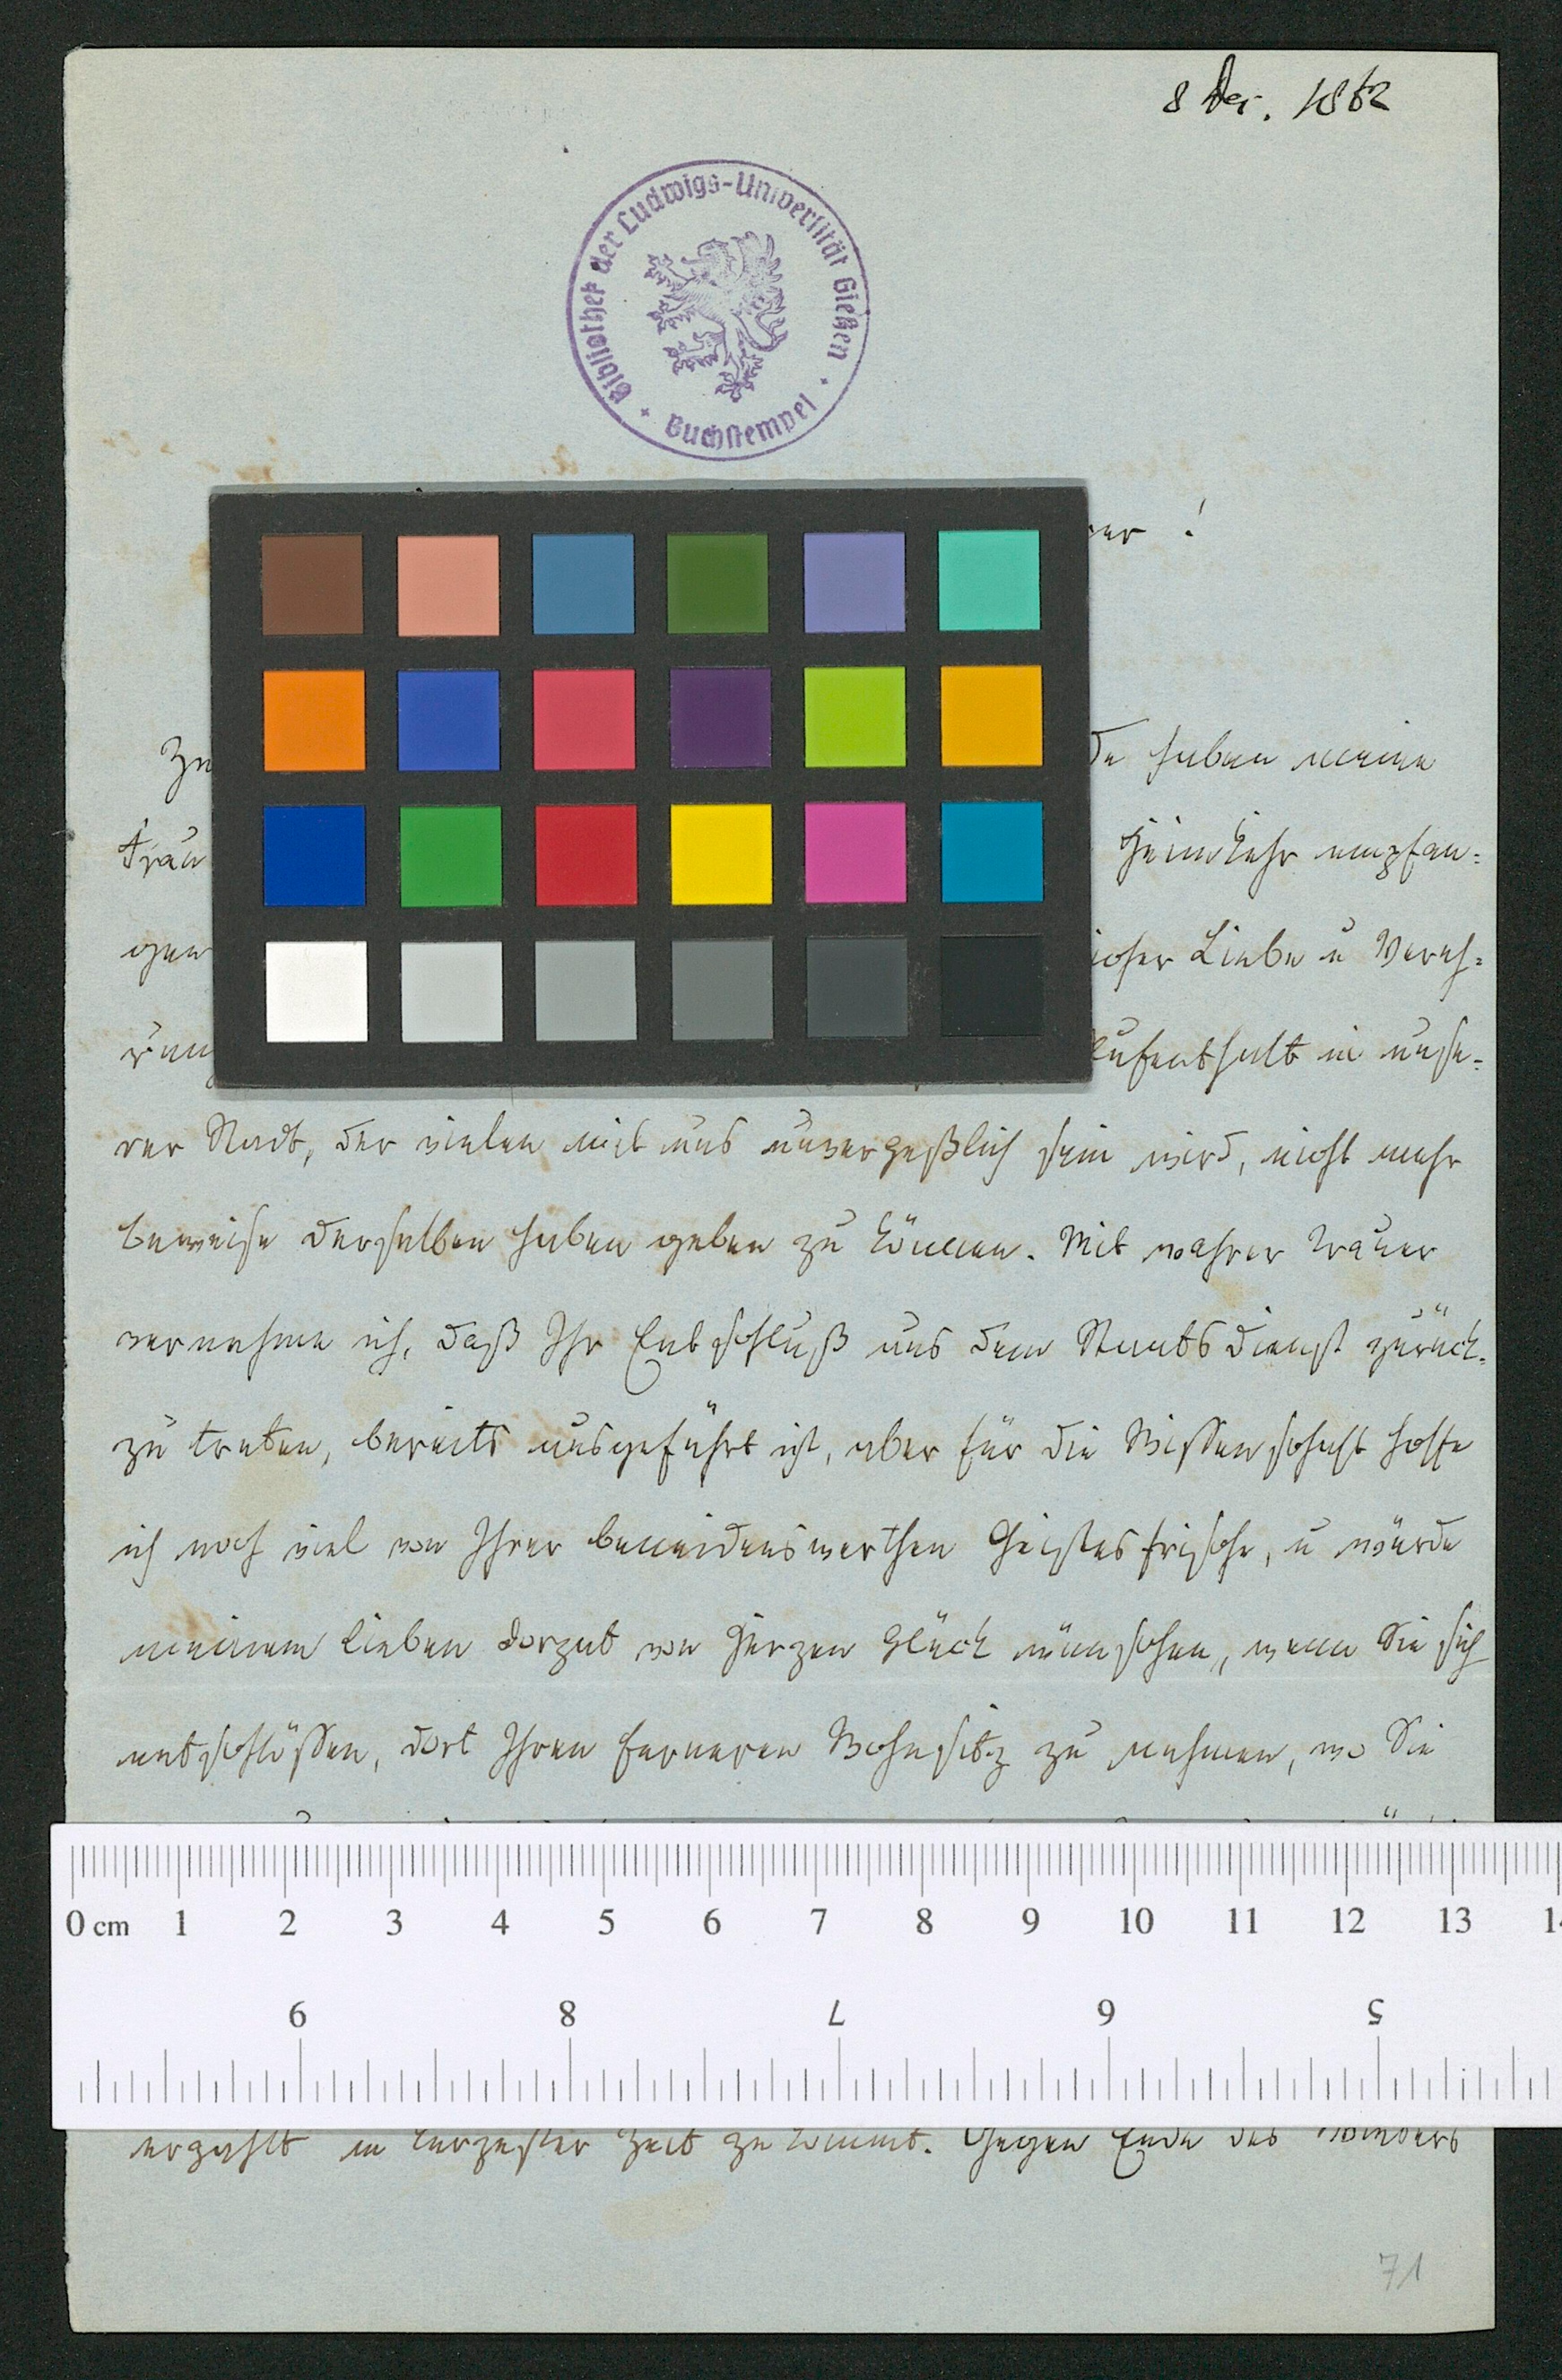 8 Dez. 1862
Bibliothek der Ludwigs-Universität Gießen
Buchstempel
!
haben meine
Frau
Heimkehr empfan-
gen
Liebe u Vereh-
rung
Aufenthalt in unse-
rer Stadt, der vielen mit uns unvergeßlich sein wird, nicht mehr
beweise derselben haben geben zu können. Mit wahrer Trauer
vernehme ich, daß Ihr Entschluß aus dem Staatsdienst zurück-
zu treten, bereits ausgeführt ist, aber für die Wissenschaft hoffe
ich noch viel von Ihrer beneidenswerthen Geistesfrische, u würde
meinem lieben Dorpat von Herzen Glück wünschen, wenn Sie sich
entschlössen, dort Ihren ferneren Wohnsitz zu nehmen, wo Sie
0 cm 1 2 3 4 5 6 7 8 9 10 11 12 13
9 8 7 6 5
erzählt in kurzester Zeit zu kommt. Gegen Ende des
71